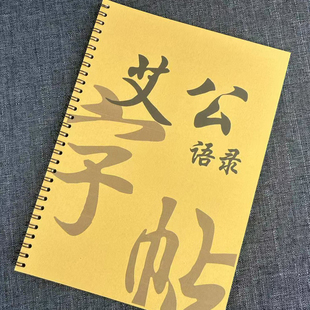 艾公
语录
字帖